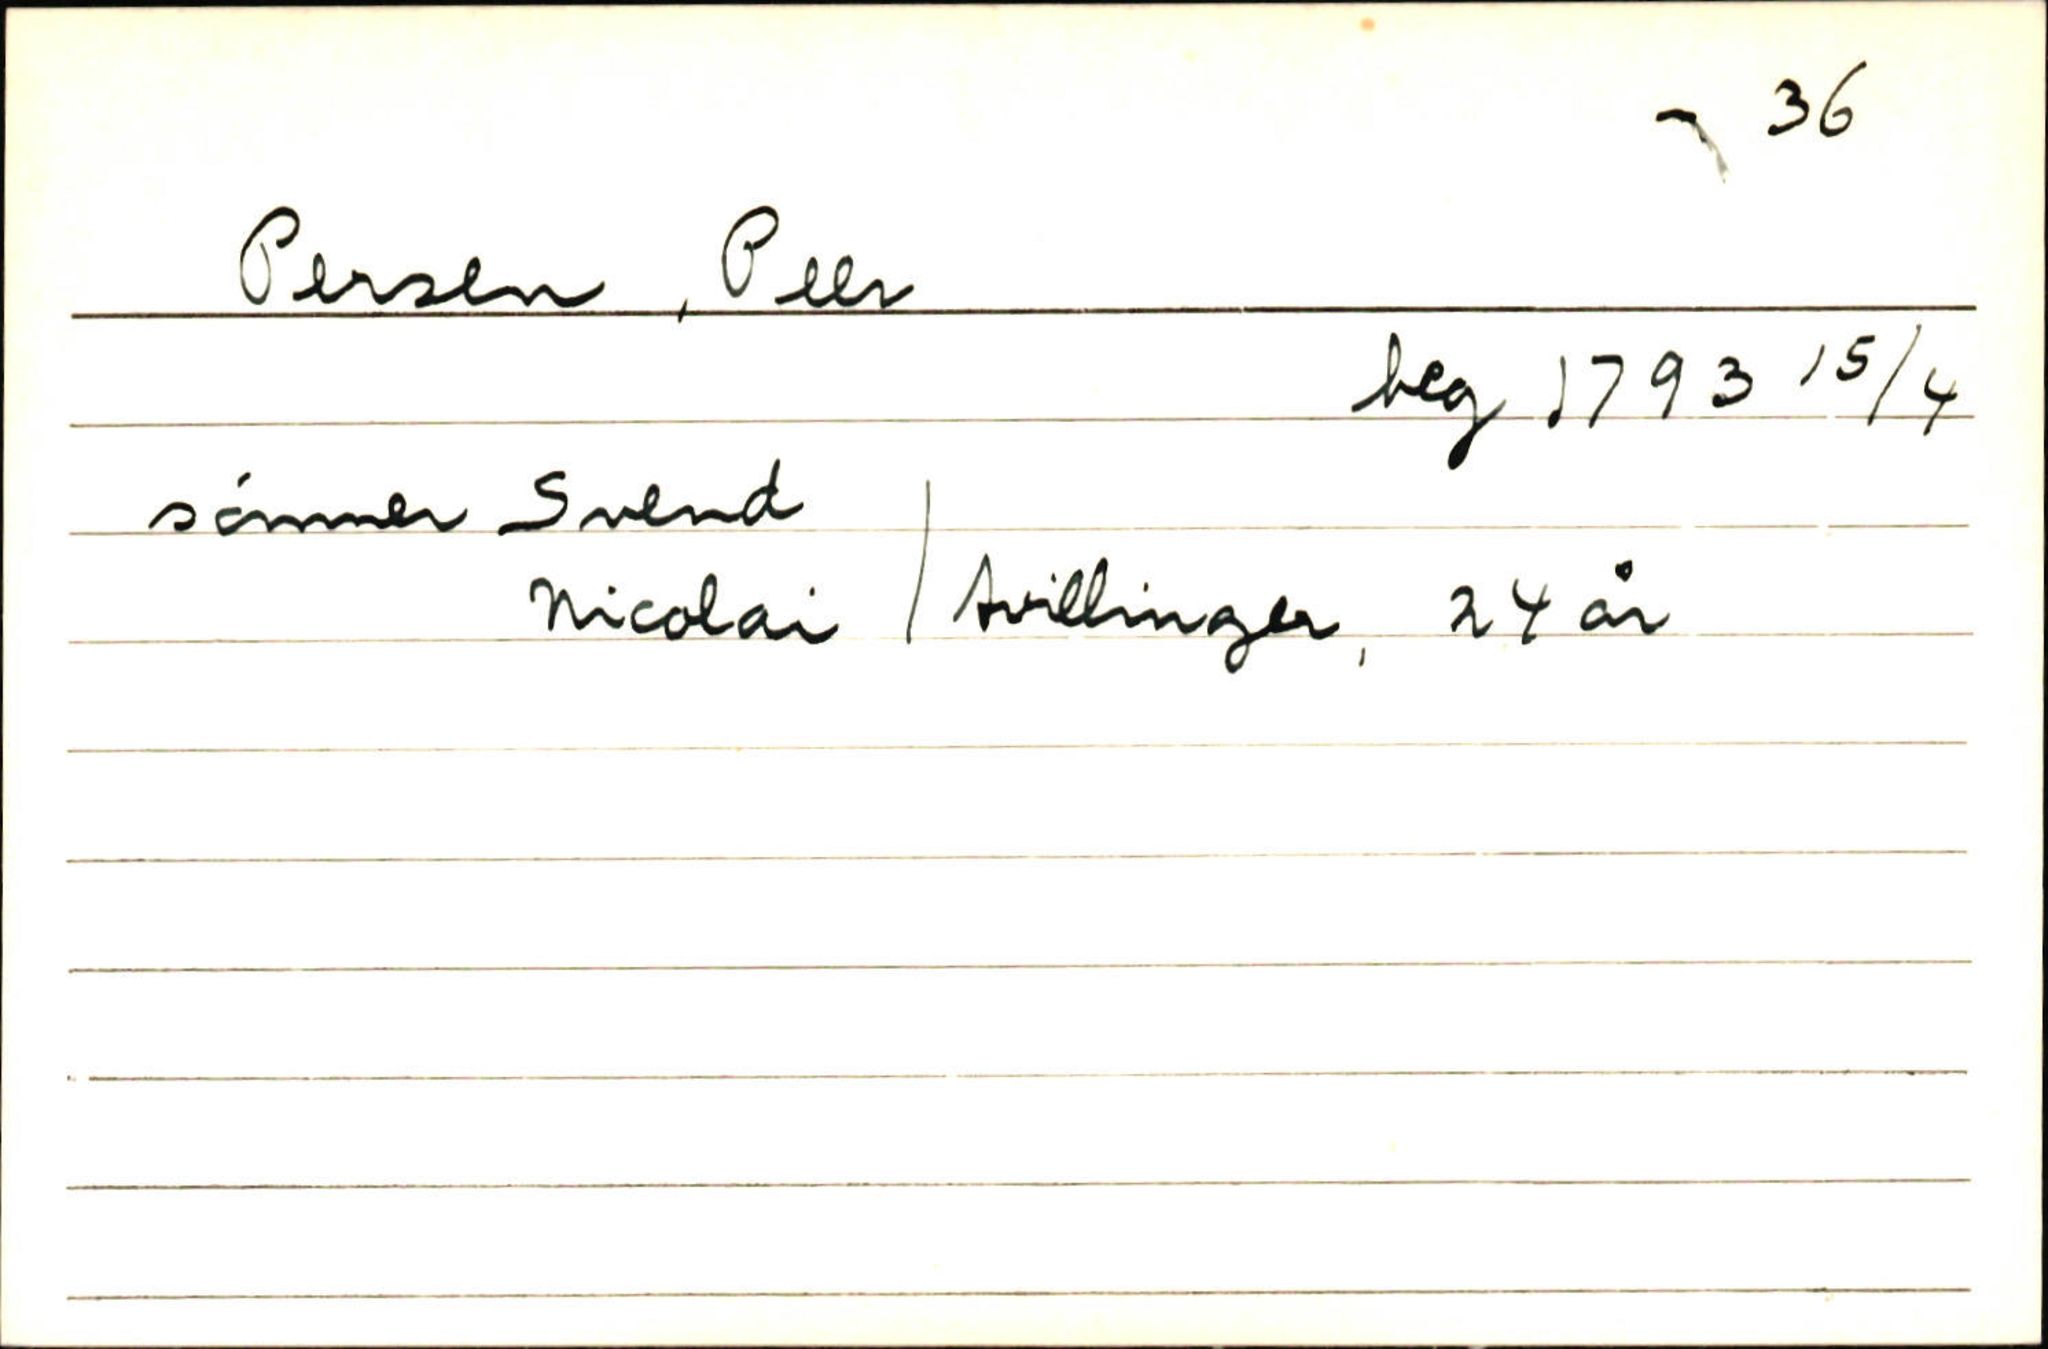 36
Persen, Peer
beg 1793 15/4
sónner Svend
Nicolai / tvillinger, 24 år